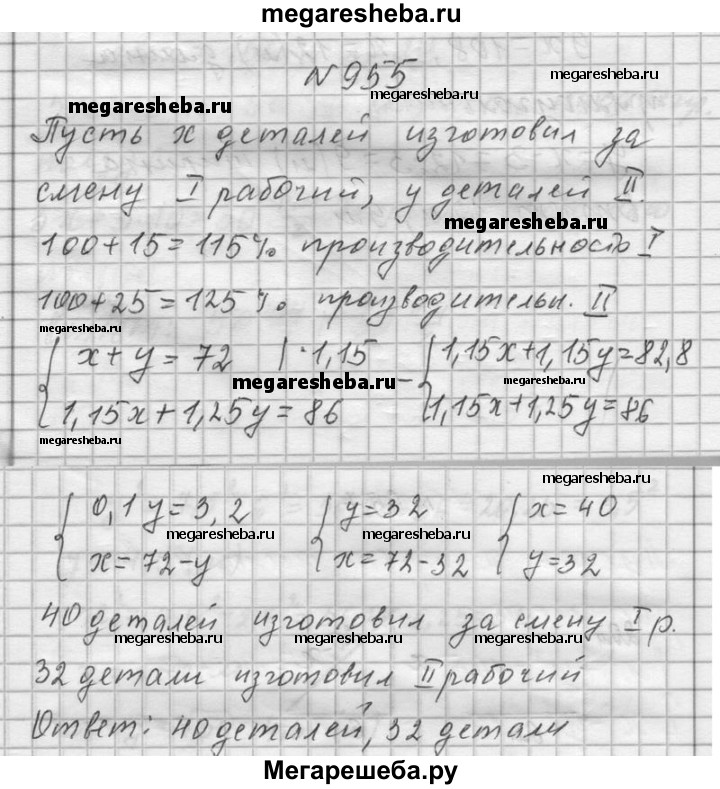 megaresheba.ru
N955
megaresheba.ru
megaresheba.ru
Пусть x деталей изготовил за
смену I рабочий, y деталей II.
megaresheba.ru
100+15=115% производительность I
100+25=125% производительн. II
megaresheba.ru
x+y=72 |·1,15
1,15x+1,15y=82,8
megaresheba.ru
megaresheba.ru
1,15x+1,25y=86
-
1,15x+1,25y=86
megaresheba.ru
megaresheba.ru
0,1y=3,2
y=32
x=40
megaresheba.ru
megaresheba.ru
megaresheba.ru
x=72-y
x=72-32
y=32
40 деталей изготовил за смену I р.
megaresheba.ru
megaresheba.ru
megaresheba.ru
32 детали изготовил II рабочий
Ответ: 40 деталей, 32 детали
Мегарешеба.ру